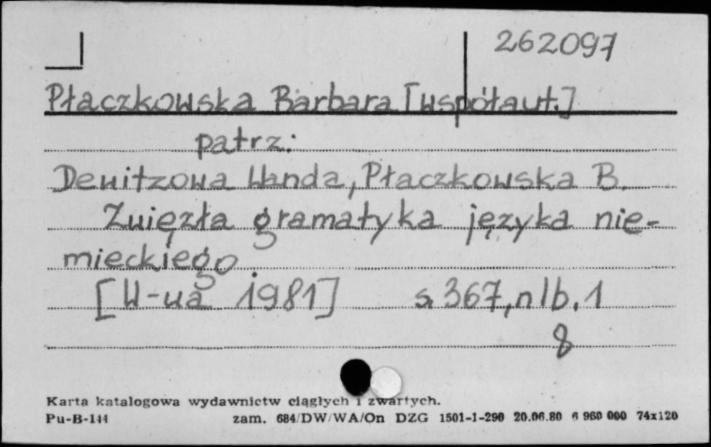 262097
Płaczkowska Barbara [współaut.]
patrz:
Dewitzowa Wanda, Płaczkowska B.
Zwięzła gramatyka języka nie-
mieckiego
[W-wa 1981] s. 367, nlb. 1
8
Karta katalogowa wydawnictw ciągłych i zwartych.
Pu-B-141 zam. 684/DW/WA/On DZG 1501-1-290 20.06.80 6 960 000 74x120